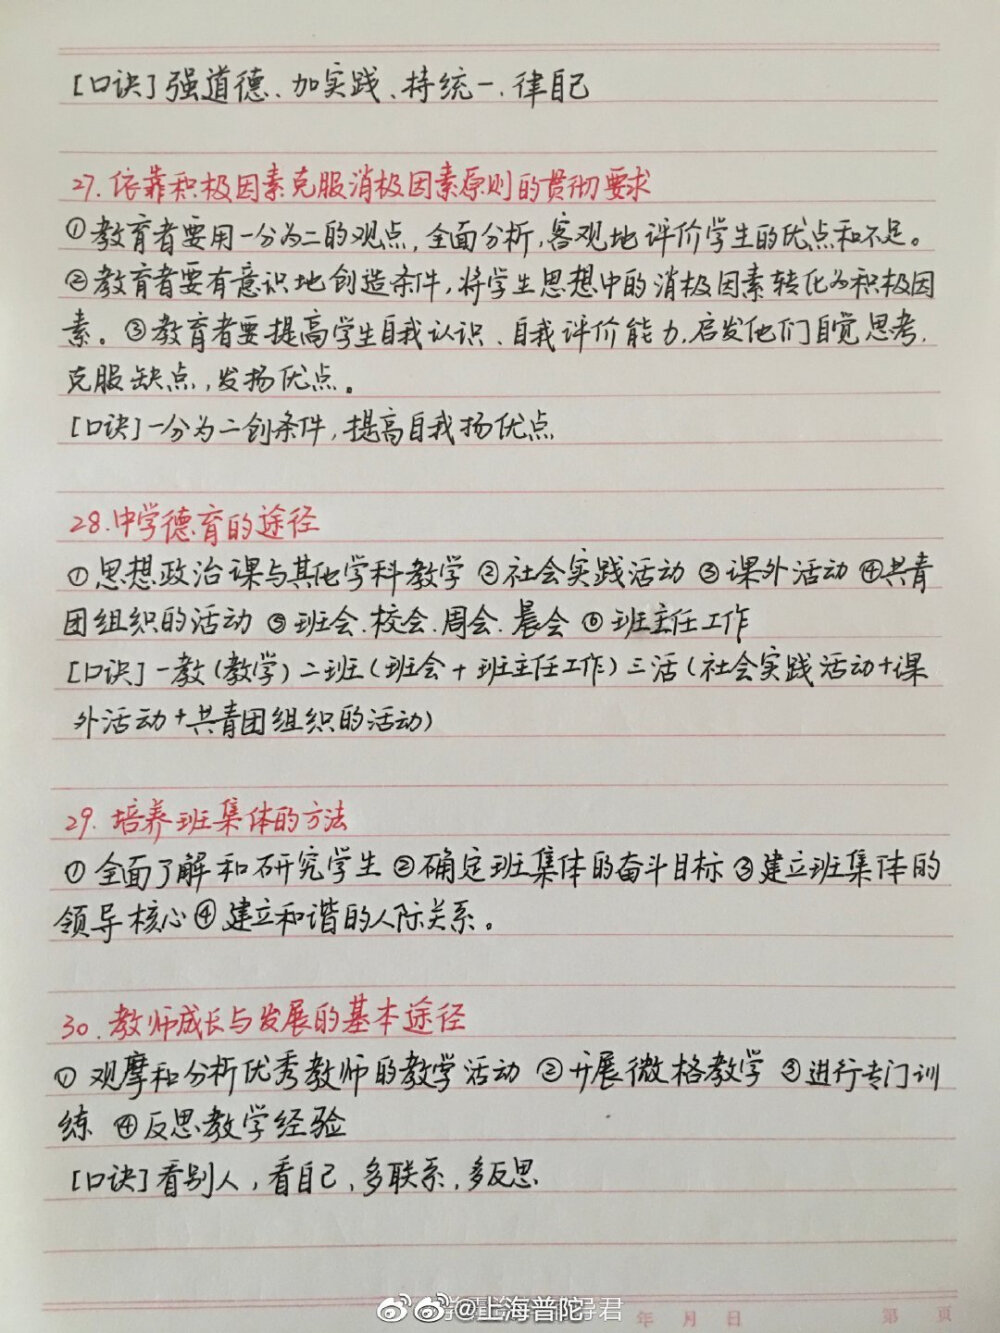 [口诀]强道德、加实践、持统一、律自己
27.依靠积极因素克服消极因素原则的贯彻要求
①教育者要用一分为二的观点,全面分析,客观地评价学生的优点和不足。
②教育者要有意识地创造条件,将学生思想中的消极因素转化为积极因
素。③教育者要提高学生自我认识、自我评价能力,启发他们自觉思考,
克服缺点,发扬优点。
[口诀]一分为二创条件,提高自我扬优点
28.中学德育的途径
①思想政治课与其他学科教学②社会实践活动③课外活动④共青
团组织的活动⑤班会.校会.周会.晨会⑥班主任工作
[口诀]一教(教学)二班(班会+班主任工作)三活(社会实践活动+课
外活动+共青团组织的活动)
29.培养班集体的方法
①全面了解和研究学生②确定班集体的奋斗目标③建立班集体的
领导核心④建立和谐的人际关系。
30.教师成长与发展的基本途径
①观摩和分析优秀教师的教学活动②开展微格教学③进行专门训
练④反思教学经验
[口诀]看别人,看自己,多联系,多反思
@上海普陀
导君
年 月 日 第 页